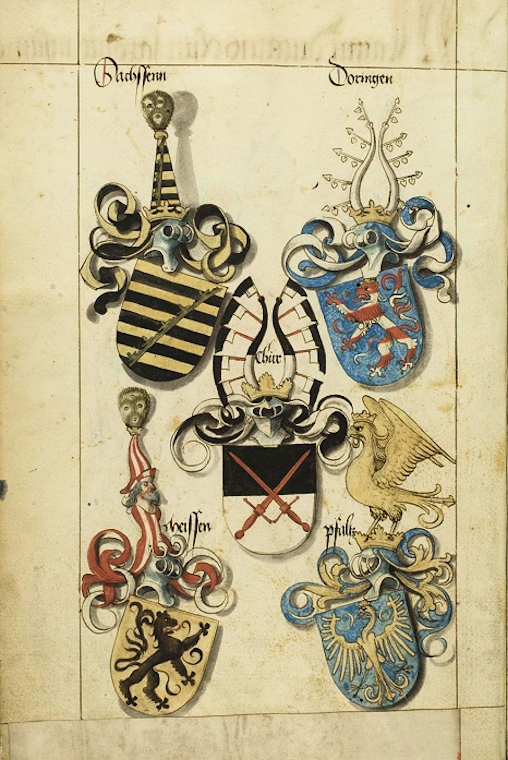 Sachssenn
Doringen
Chur
Meissen
pfaltz